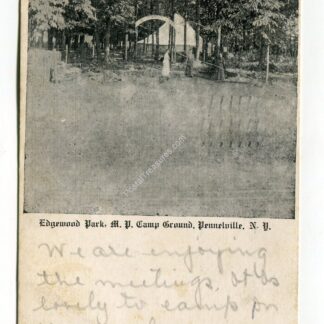 Edgewood Park, M. P. Camp Ground, Pennelville, N. Y.
We are enjoying
the meetings. It is
lovely to camp on